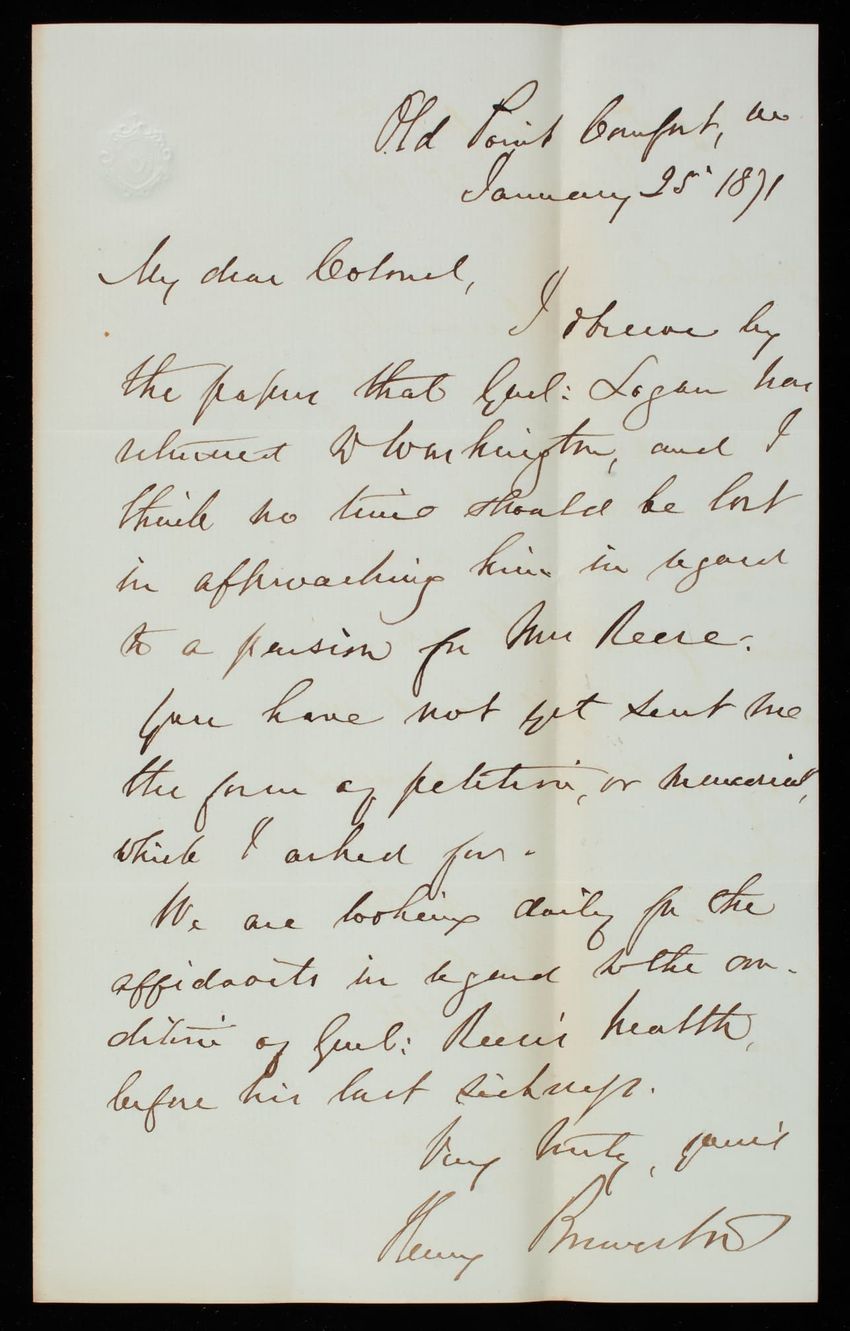 Old Point Comfort, Va
January 25" 1871
My dear Colonel,
I observe by
the papers that Genl: Logan has
returned to Washington, and I
think no time should be lost
in approaching him in regard
to a pension for Mrs Reese.
You have not yet sent me
the form of petition, or memorial,
which I asked for.
We are looking daily for the
affidavits in regard to the con-
dition of Genl: Reese's health,
before his last sickness.
Very truly, your's
Henry Brewerton